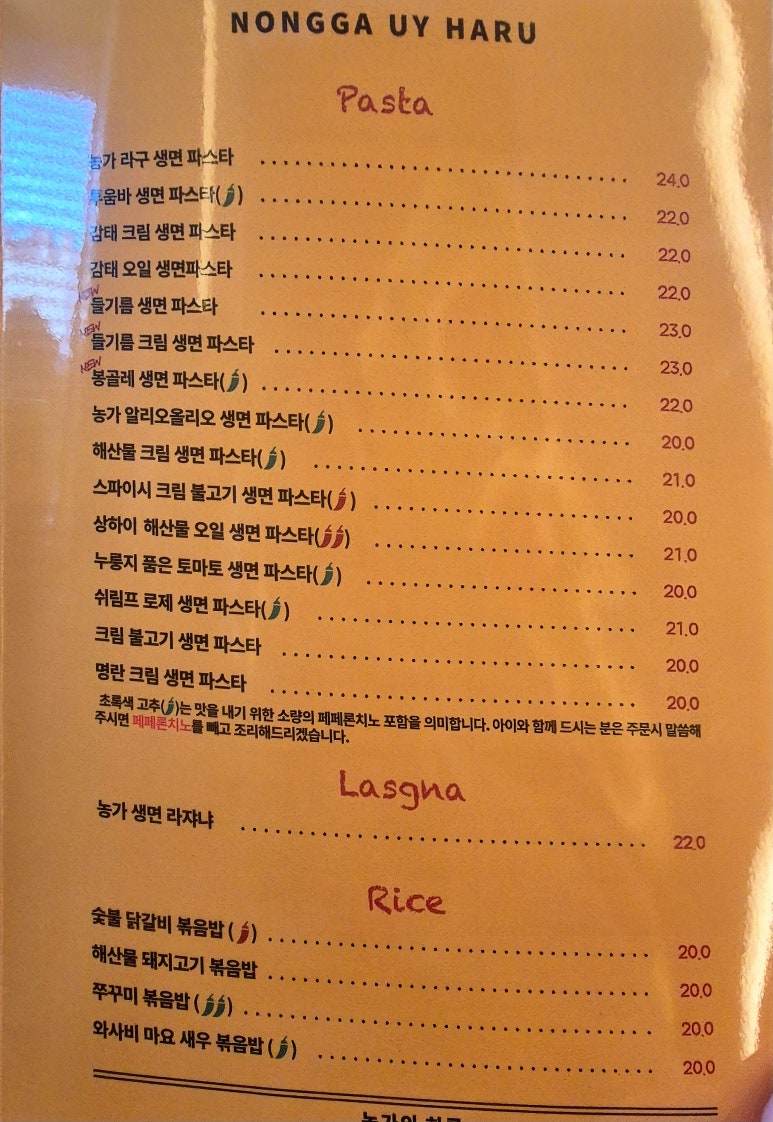 NONGGA UY HARU
Pasta
농가 라구 생면 파스타 24.0
투움바 생면 파스타( ) 22.0
감태 크림 생면 파스타 22.0
감태 오일 생면파스타 22.0
NEW 들기름 생면 파스타 23.0
NEW 들기름 크림 생면 파스타 23.0
NEW 봉골레 생면 파스타( ) 22.0
농가 알리오올리오 생면 파스타( ) 20.0
해산물 크림 생면 파스타( ) 21.0
스파이시 크림 불고기 생면 파스타( ) 20.0
상하이 해산물 오일 생면 파스타( ) 21.0
누룽지 품은 토마토 생면 파스타( ) 20.0
쉬림프 로제 생면 파스타( ) 21.0
크림 불고기 생면 파스타 20.0
명란 크림 생면 파스타 20.0
초록색 고추( )는 맛을 내기 위한 소량의 페페론치노 포함을 의미합니다. 아이와 함께 드시는 분은 주문시 말씀해
주시면 페페론치노를 빼고 조리해드리겠습니다.
Lasgna
농가 생면 라쟈냐 22.0
Rice
숯불 닭갈비 볶음밥 ( ) 20.0
해산물 돼지고기 볶음밥 20.0
쭈꾸미 볶음밥 ( ) 20.0
와사비 마요 새우 볶음밥 ( ) 20.0